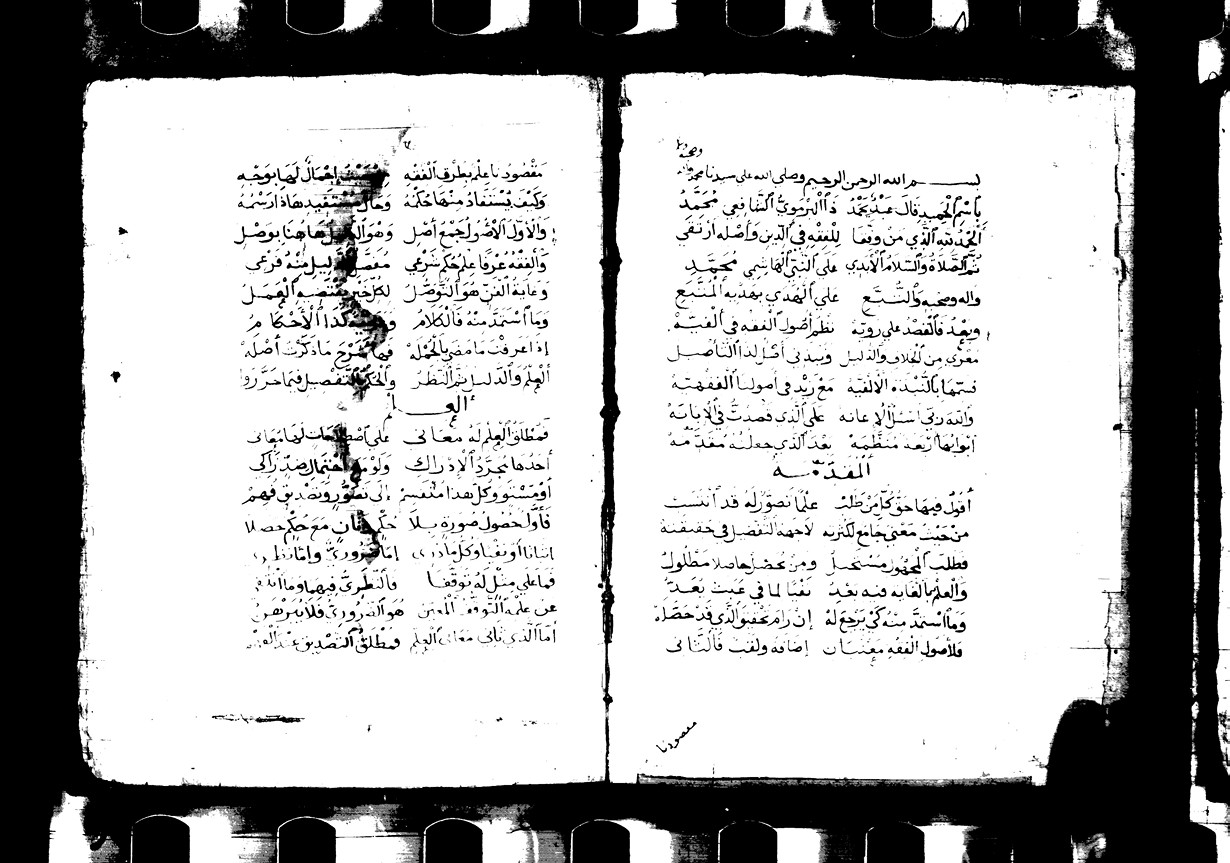 بسم الله الرحمن الرحيم وصلى الله على سيدنا محمد وآله
وصحبه
باسم الحميد قال عبد محمد ذا البرموي الشافعي محمد
الحمد لله الذي من وبقا للفقه في الدين وأصله ارتقى
ثم الصلاة والسلام الأبدي على النبي الهاشمي محمد
واله وصحبه والتبع على الهدى بهديه المتبع
وبعد فالقصد على رويه نظم أصول الفقه في ألفيه
معرى من الخلاف والدليل وتبدى أصل لذا التأصيل
سميتها بالنبذه الالفيه مع زيد في أصولنا الفقهيه
والله ربي اسئل الاعانه على الذي قصدت في الابانه
أبوابها أربعة منظمه بعد الذي جعلته مقدمه
المقدمة
أقول فيها حق كل من طلب علما تصوره له قد انتسب
من حيث معنى جامع لكثره لاجهة لتفضيل في حقيقته
فطلب المجهول مستحيل ومن تحصل حاصلا مطلول
والعلم بالغايه فيه بعد نفيا لما في عبث يعد
وما استمد منه كي يرجع له إن رام تحقيق الذي قد حصله
فلأصول الفقه معنيان إضافة ولقب فالثاني
مقصودنا
مقصودنا علم بطرق الفقه إجمال لها توجه
وكيف يستفاد منها حكمه وحال مستفيد هاذا رسمه
والأول الأصول جمع أصل وهو الدليل هاهنا بوصل
والفقه عرفا علم حكم شرعي مفصل دليل منه فرعي
وغاية الفن هو التوصل لكل خير يقتضيه العمل
وما استمد منه فالكلام كذا الأحكام
إذا عرفت ما مضى بالجمله فهاك شرح ما ذكرت أصله
العلم والدليل ثم النظر والحكم التفصيل فيما حرروا
العلم
فمطلق العلم له معاني على اصطلاحات لها مباني
أحدها مجرد الإدراك ولو مع احتمال ضد زاكي
أو مستو وكل هذا منقسم إلى تصور وتصديق فهم
فأول حصول صورة بلا حكم وثان مع حكم حصلا
اثباتا أو نفيا وكل ما ذري إما ضروري وإما نظري
فما على مثل له توقفا فالنظري فيهما وما انتفى
عن علمه التوقف المعين هو الضروري فلا يبرهن
أما الذي تأتي معاني العلم فمطلق التصديق عند